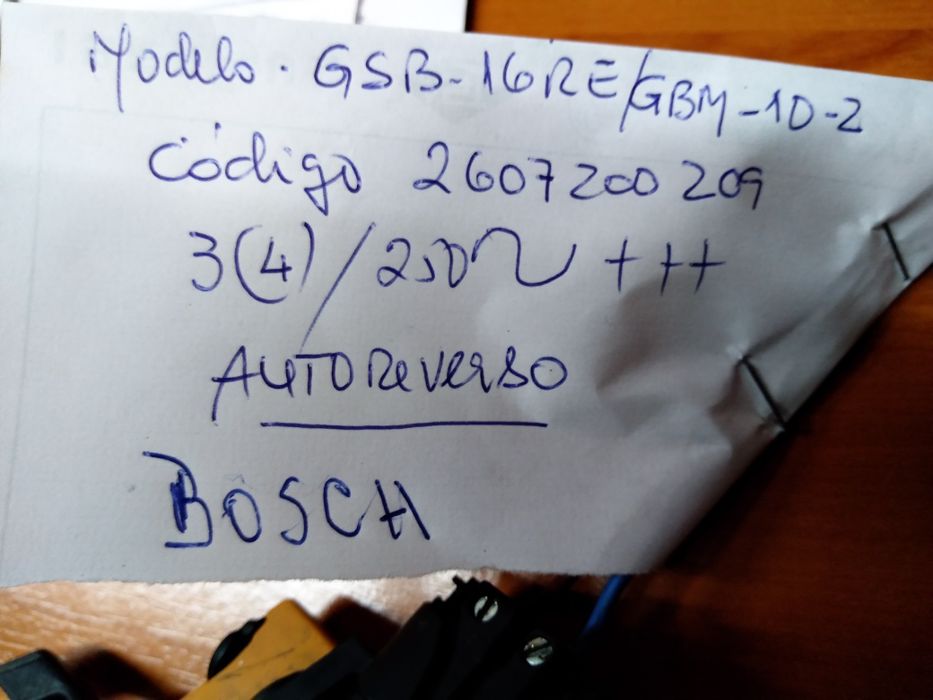 Modelo · GSB-16RE/GBM-10-2
Código 2607200209
3(4)/250 ~ +++
AUTOReverso
BOSCH